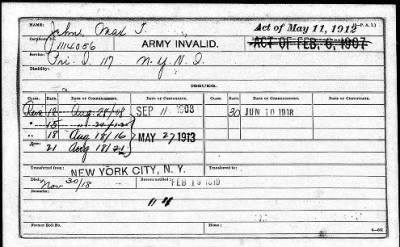 NAME: John, Max T. Act of May 11, 1912
Certificate No. 1114056 ARMY INVALID. ACT OF FEB. 6, 1907
Service: Pri. I 117 N.Y. I.
Disability:
ISSUED.
CLASS. RATE. DATE OF COMMENCEMENT. DATE OF CERTIFICATE. CLASS. RATE. DATE OF COMMENCEMENT. DATE OF CERTIFICATE.
12 Aug SEP 11 1908 30 JUN 10 1918
" 15 "
" 18 Aug 18/16 MAY 27 1913
21 Aug 18/21
Transferred from NEW YORK CITY, N. Y. Transferred to
Died: Nov 30/18 FEB 1919
Remarks:
Former Roll No.